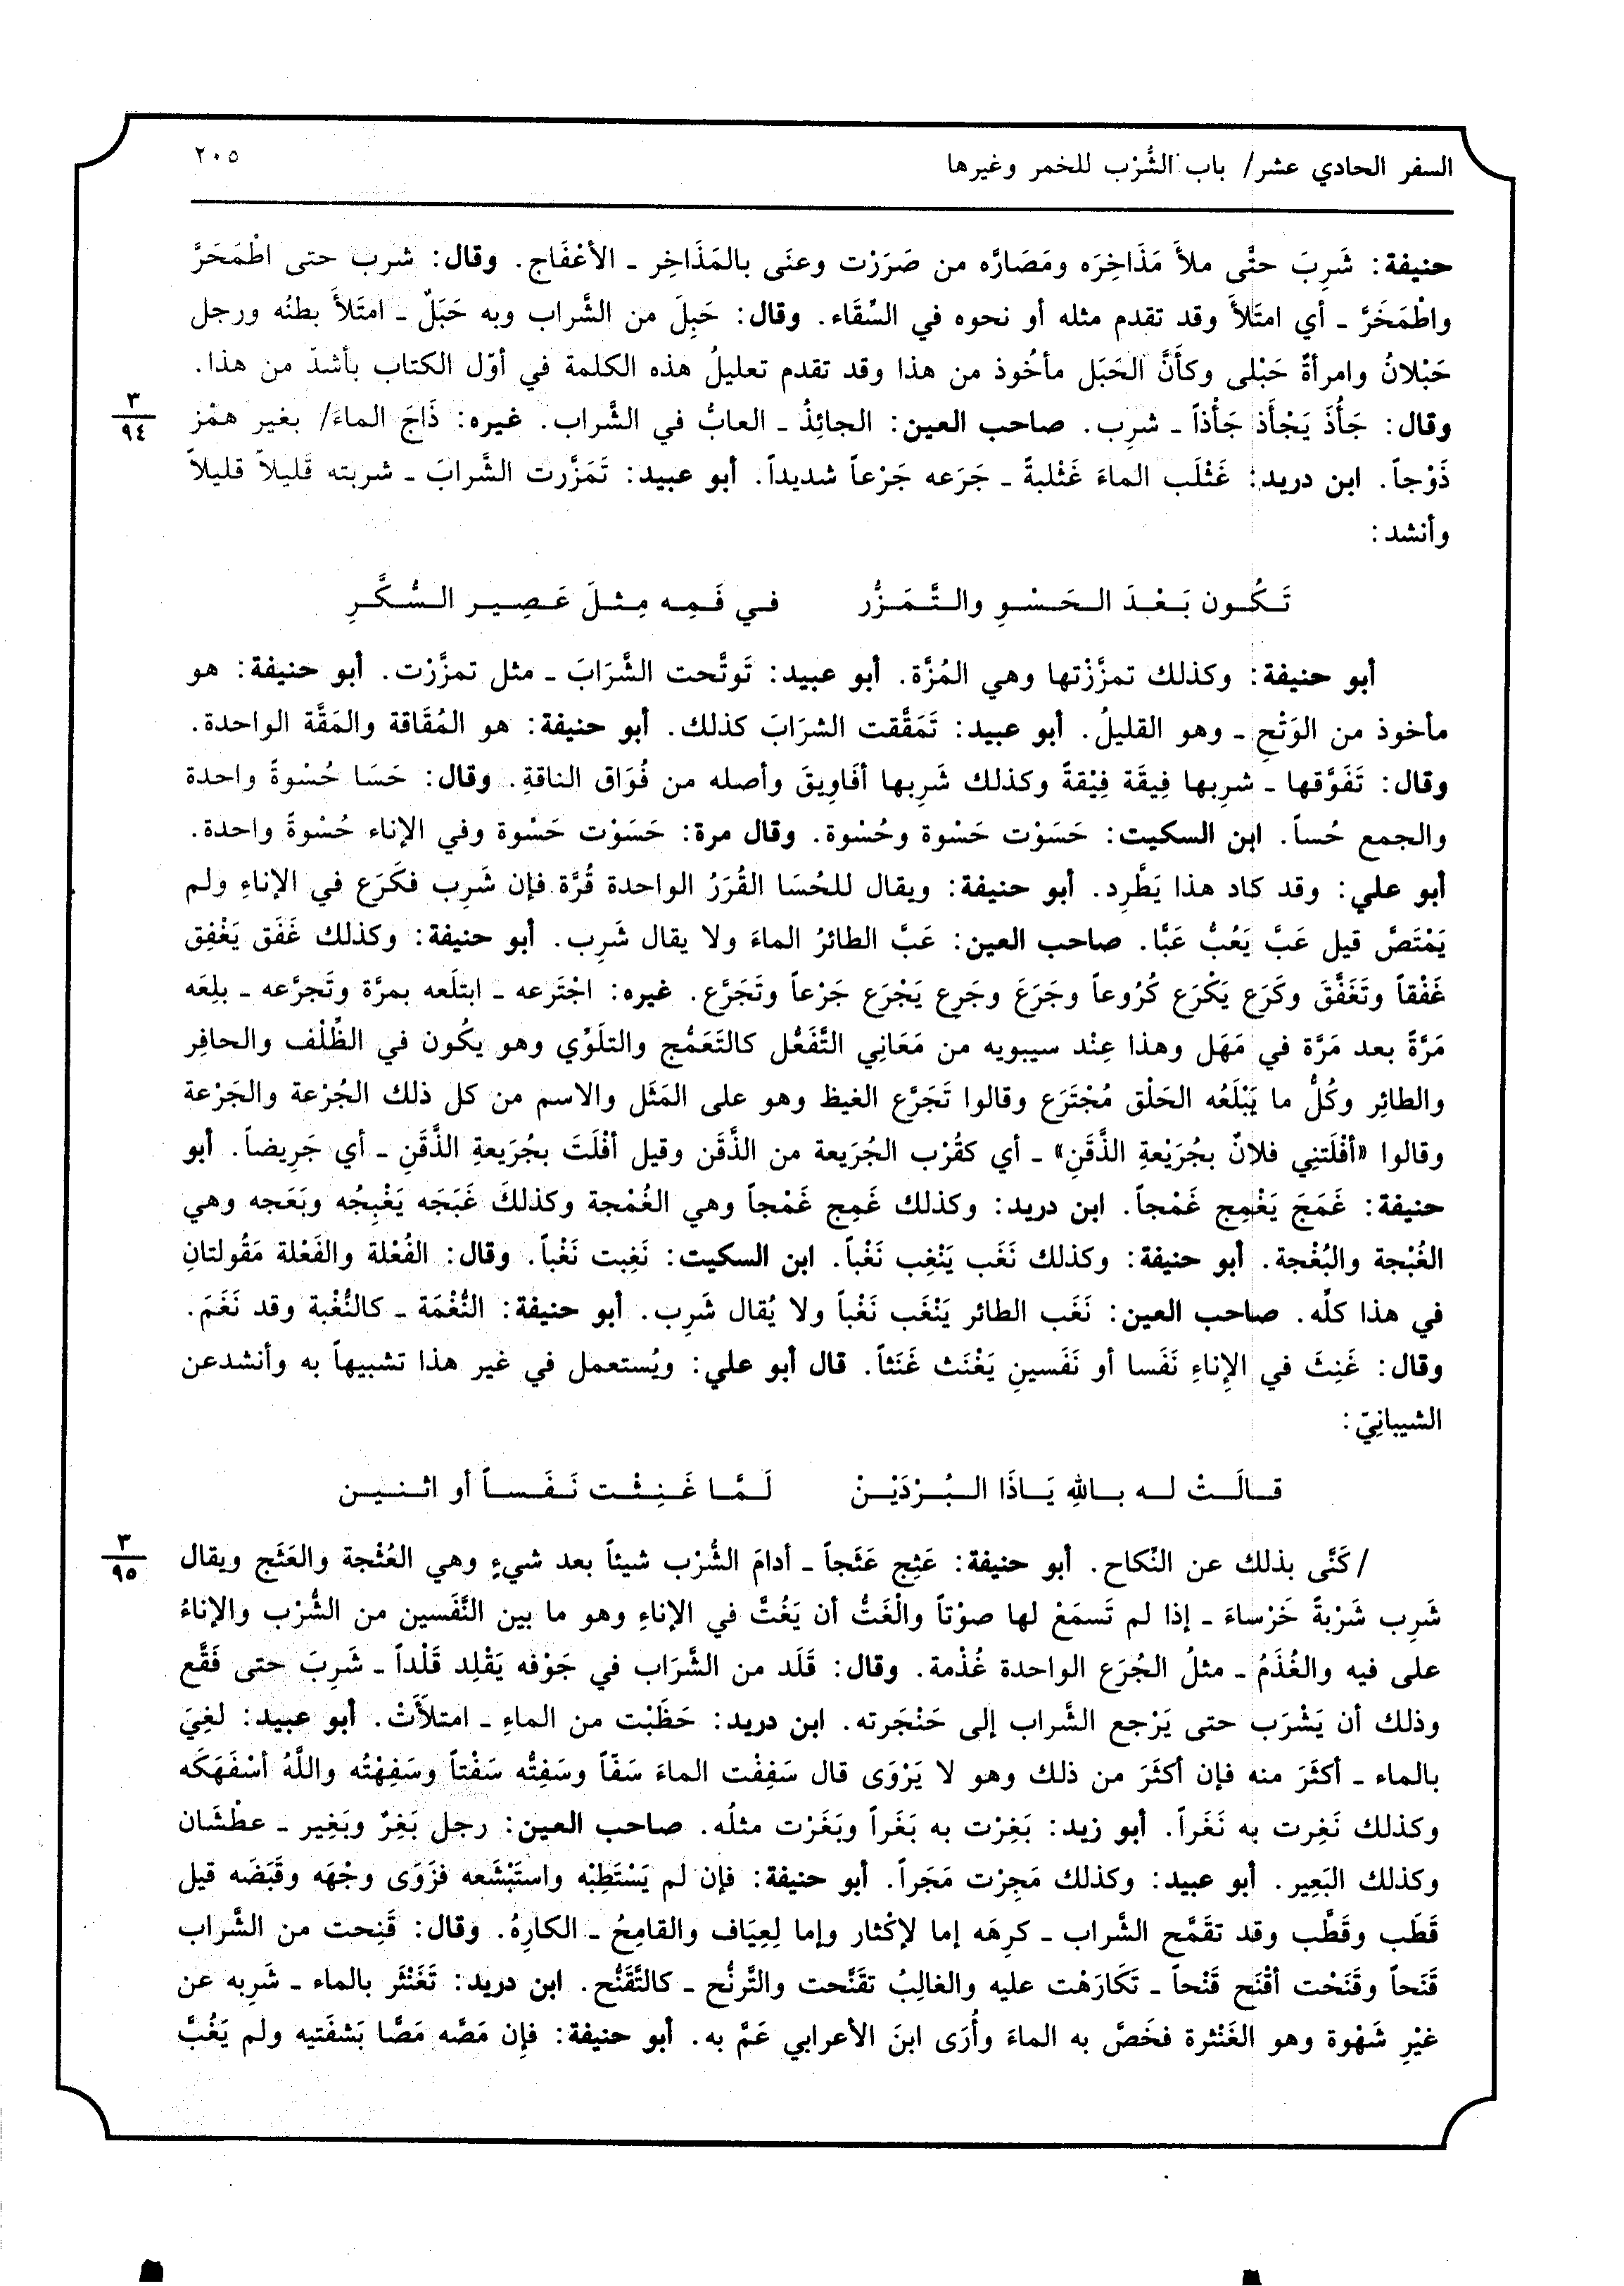 السفر الحادي عشر/ باب الشُّرْب للخمر وغيرها
٢٠٥
حنيفة: شَرِبَ حتَّى ملأَ مَذَاخِرَه ومَصَارَّه من صَرَرْت وعنَى بالمَذَاخِر ـ الأعْفَاج. وقال: شرب حتى اطْمَحَرَّ
واطْمَخَرَّ ـ أي امتَلأَ وقد تقدم مثله أو نحوه في السِّقَاء. وقال: حَبِلَ من الشَّراب وبه حَبَلٌ ـ امتَلأَ بطنُه ورجل
حَبْلانُ وامرأةٌ حَبْلى وكأنَّ الحَبَل مأخُوذ من هذا وقد تقدم تعليلُ هذه الكلمة في أوّل الكتاب بأشدّ من هذا.
٣
٩٤
وقال: جَأَذَ يَجْأَذ جَأْذاً ـ شرِب. صاحب العين: الجائِذُ ـ العابُّ في الشَّراب. غيره: ذَاجَ الماءَ/ بغير همْز
ذَوْجاً. ابن دريد: غَثْلَب الماءَ غَثْلبةً ـ جَرَعه جَرْعاً شديداً. أبو عبيد: تَمَزَّرت الشَّرابَ ـ شربته قَليلاً قليلاً
وأنشد:
تَكُـون بَعْـدَ الحَسْـوِ والتَّمَـزُّر في فَمِـه مِثلَ عَصِيـر السُّكَّـرِ
أبو حنيفة: وكذلك تمزَّزْتها وهي المُزَّة. أبو عبيد: تَوتَّحت الشَّرَابَ ـ مثل تمزَّزْت. أبو حنيفة: هو
مأخوذ من الوَتْحِ ـ وهو القليلُ. أبو عبيد: تَمَقَّقت الشرَابَ كذلك. أبو حنيفة: هو المُقَاقة والمَقَّة الواحدة.
وقال: تَفَوَّقها ـ شرِبها فِيقَة فِيْقةً وكذلك شَرِبها أفَاوِيقَ وأصله من فُوَاق الناقةِ. وقال: حَسَا حُسْوةً واحدة
والجمع حُساً. ابن السكيت: حَسَوْت حَسْوة وحُسْوة. وقال مرة: حَسَوْت حَسْوة وفي الإناء حُسْوةً واحدة.
أبو علي: وقد كاد هذا يَطَّرِد. أبو حنيفة: ويقال للحُسَا القُرَرُ الواحدة قُرَّة فإن شَرِب فكَرَع في الإناءِ ولم
يَمْتَصَّ قيل عَبَّ يَعُبُّ عَبًّا. صاحب العين: عَبَّ الطائرُ الماءَ ولا يقال شَرِب. أبو حنيفة: وكذلك غَفَق يَغْفِق
غَفْقاً وتَغَفَّقَ وكَرَع يَكْرَع كُرُوعاً وجَرَعَ وجَرِع يَجْرَع جَرْعاً وتَجَرَّع. غيره: اجْتَرعه ـ ابتلَعه بمرَّة وتَجرَّعه ـ بلِعَه
مَرَّةً بعد مَرَّة في مَهَل وهذا عِنْد سيبويه من مَعَانِي التَّفَعُّل كالتَعَمُّج والتلَوِّي وهو يكُون في الظِّلْف والحافِر
والطائِر وكُلُّ ما يَبْلَعُه الحَلْق مُجْتَرَع وقالوا تَجَرَّع الغيظ وهو على المَثَل والاسم من كل ذلك الجُرْعة والجَرْعة
وقالوا «أفْلَتنِي فلانٌ بجُرَيْعةِ الذَّقَنِ» ـ أي كقُرْب الجُرَيعة من الذَّقَن وقيل أفْلَتَ بجُرَيعةِ الذَّقَنِ ـ أي جَرِيضاً. أبو
حنيفة: غَمَجَ يَغْمِج غَمْجاً. ابن دريد: وكذلك غَمِج غَمْجاً وهي الغُمْجة وكذلكَ غَبَجَه يَغْبِجُه وبَعَجه وهي
الغُبْجة والبُغْجة. أبو حنيفة: وكذلك نَغَب يَنْغِب نَغْباً. ابن السكيت: نَغِبت نَغْباً. وقال: الفُعْلة والفَعْلة مَقُولتانِ
في هذا كلّه. صاحب العين: نَغَب الطائر يَنْغَب نَغْباً ولا يُقال شَرِب. أبو حنيفة: النُّغْمَة ـ كالنُّغْبة وقد نَغَمَ.
وقال: غَنِثَ في الإناءِ نَفَسا أو نَفَسينِ يَغْنَث غَنَثاً. قال أبو علي: ويُستعمل في غير هذا تشبيهاً به وأنشدعن
الشيبانِيّ:
قـالَـتْ لـه بـاللهِ يَـاذَا البُـرْدَيْـنْ لَـمَّـا غَنِـثْـت نَـفَـسـاً أو اثـنيـن
٣
٩٥
/كَنَّى بذلك عن النّكاح. أبو حنيفة: عَثِج عَثَجاً ـ أدامَ الشُّرْب شيئاً بعد شيءٍ وهي العُثْجة والعَثَج ويقال
شَرِب شَرْبةً خَرْساءَ ـ إذا لم تَسمَعْ لها صوْتاً والْغَتُّ أن يَغُتَّ في الإناءِ وهو ما بين النَّفَسين من الشُّرْب والإناءُ
على فيه والغُذَمُ ـ مثلُ الجُرَع الواحدة غُذْمة. وقال: قَلَد من الشَّرَاب في جَوْفه يَقْلِد قَلْداً ـ شَرِبَ حتى فَقَّع
وذلك أن يَشْرَب حتى يَرْجع الشَّراب إلى حَنْجَرته. ابن دريد: حَظَبْت من الماءِ ـ امتلأَتْ. أبو عبيد: لغِيَ
بالماء ـ أكثَرَ منه فإن أكثَرَ من ذلك وهو لا يَرْوَى قال سَفِفْت الماءَ سَفّاً وسَفِتُّه سَفْتاً وسَفِهْتُه واللَّهُ أسْفَهَكَه
وكذلك نَغِرت به نَغَراً. أبو زيد: بَغِرْت به بَغَراً وبَغَرْت مثلُه. صاحب العين: رجل بَغِرٌ وبَغِير ـ عطْشَان
وكذلك البَعِير. أبو عبيد: وكذلك مَجِرْت مَجَراً. أبو حنيفة: فإن لم يَسْتَطِبْه واستَبْشَعه فزَوَى وجْهَه وقَبَضَه قيل
قَطَب وقَطَّب وقد تقَمَّح الشَّراب ـ كرِهَه إما لإكْثار وإما لِعِيَاف والقامِحُ ـ الكارِهُ. وقال: قَنِحت من الشَّراب
قَنَحاً وقَنَحْت أقْنَح قَنْحاً ـ تَكَارَهْت عليه والغالِبُ تقَنَّحت والتَّرنُّح ـ كالتَّقَنُّح. ابن دريد: تَغَنْثَر بالماء ـ شَرِبه عن
غيْرِ شَهْوة وهو الغَنْثرة فخَصَّ به الماءَ وأُرَى ابنَ الأعرابي عَمَّ به. أبو حنيفة: فإن مَصَّه مَصًّا بَشفَتيه ولم يَغُبَّ